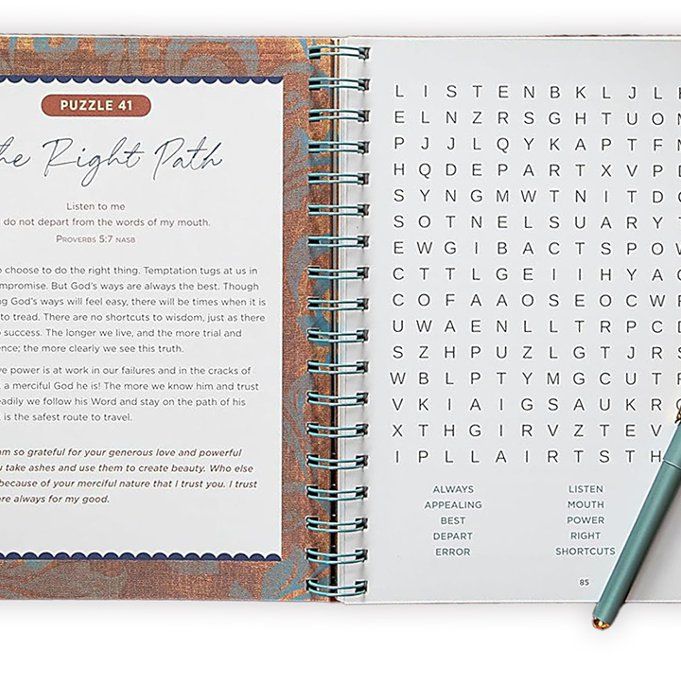 PUZZLE 41
he Right Path
Listen to me
do not depart from the words of my mouth.
PROVERBS 5:7 NASB
choose to do the right thing. Temptation tugs at us in
ompromise. But God's ways are always the best. Though
ng God's ways will feel easy, there will be times when it is
to tread. There are no shortcuts to wisdom, just as there
success. The longer we live, and the more trial and
ence; the more clearly we see this truth.
ve power is at work in our failures and in the cracks of
a merciful God he is! The more we know him and trust
eadily we follow his Word and stay on the path of his
is the safest route to travel.
am so grateful for your generous love and powerful
u take ashes and use them to create beauty. Who else
because of your merciful nature that I trust you. I trust
are always for my good.
L I S T E N B K L J L
E L N Z R S G H T U O M
P J J L Q Y K A P T F M
H Q D E P A R T X V P D
S Y N G M W T N I T D
S O T N E L S U A R Y T
E W G I B A C T S P O W
C T T L G E I I H Y A
C O F A A O S E O C W
U W A E N L L T R P C D
S Z H P U Z L G T J R S
W B L P T Y M G C U T
V K I A I G S A U K R
X T H G I R V Z T E V
I P L L A I R T S T H
ALWAYS
APPEALING
BEST
DEPART
ERROR
LISTEN
MOUTH
POWER
RIGHT
SHORTCUTS
85